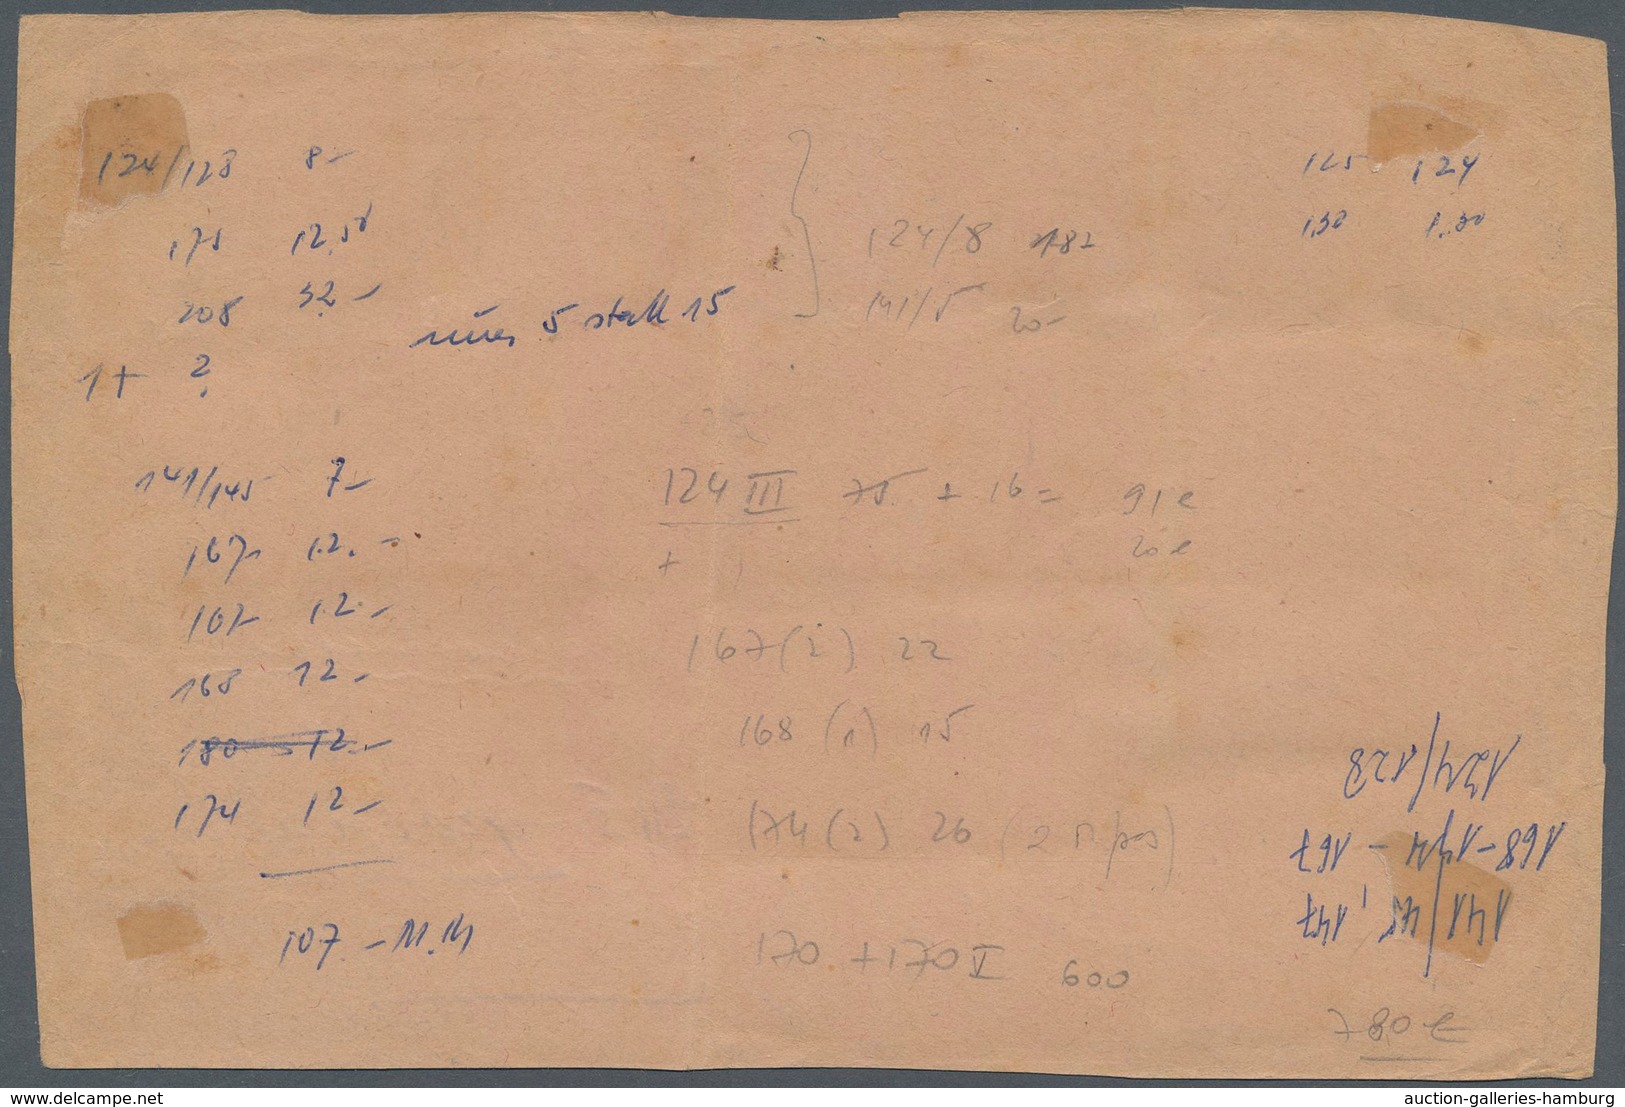 124/128 8-
175 12,50
208 32-
1+ ?
5 statt 15
124/8 182
141/5 20-
125 124
1,50 1,30
141/145 7-
167 12.-
167 12.-
168 12.-
180 12.-
174 12-
107.- M.M
124 III 75 + 16 = 91 €
+ 20 €
167 (2) 22
168 (1) 15
174 (2) 26 (2
170 + 170 V 600
141/45, 147
168-174-167
124/128
780 €
delcampe.net
auction-galleries-hamburg